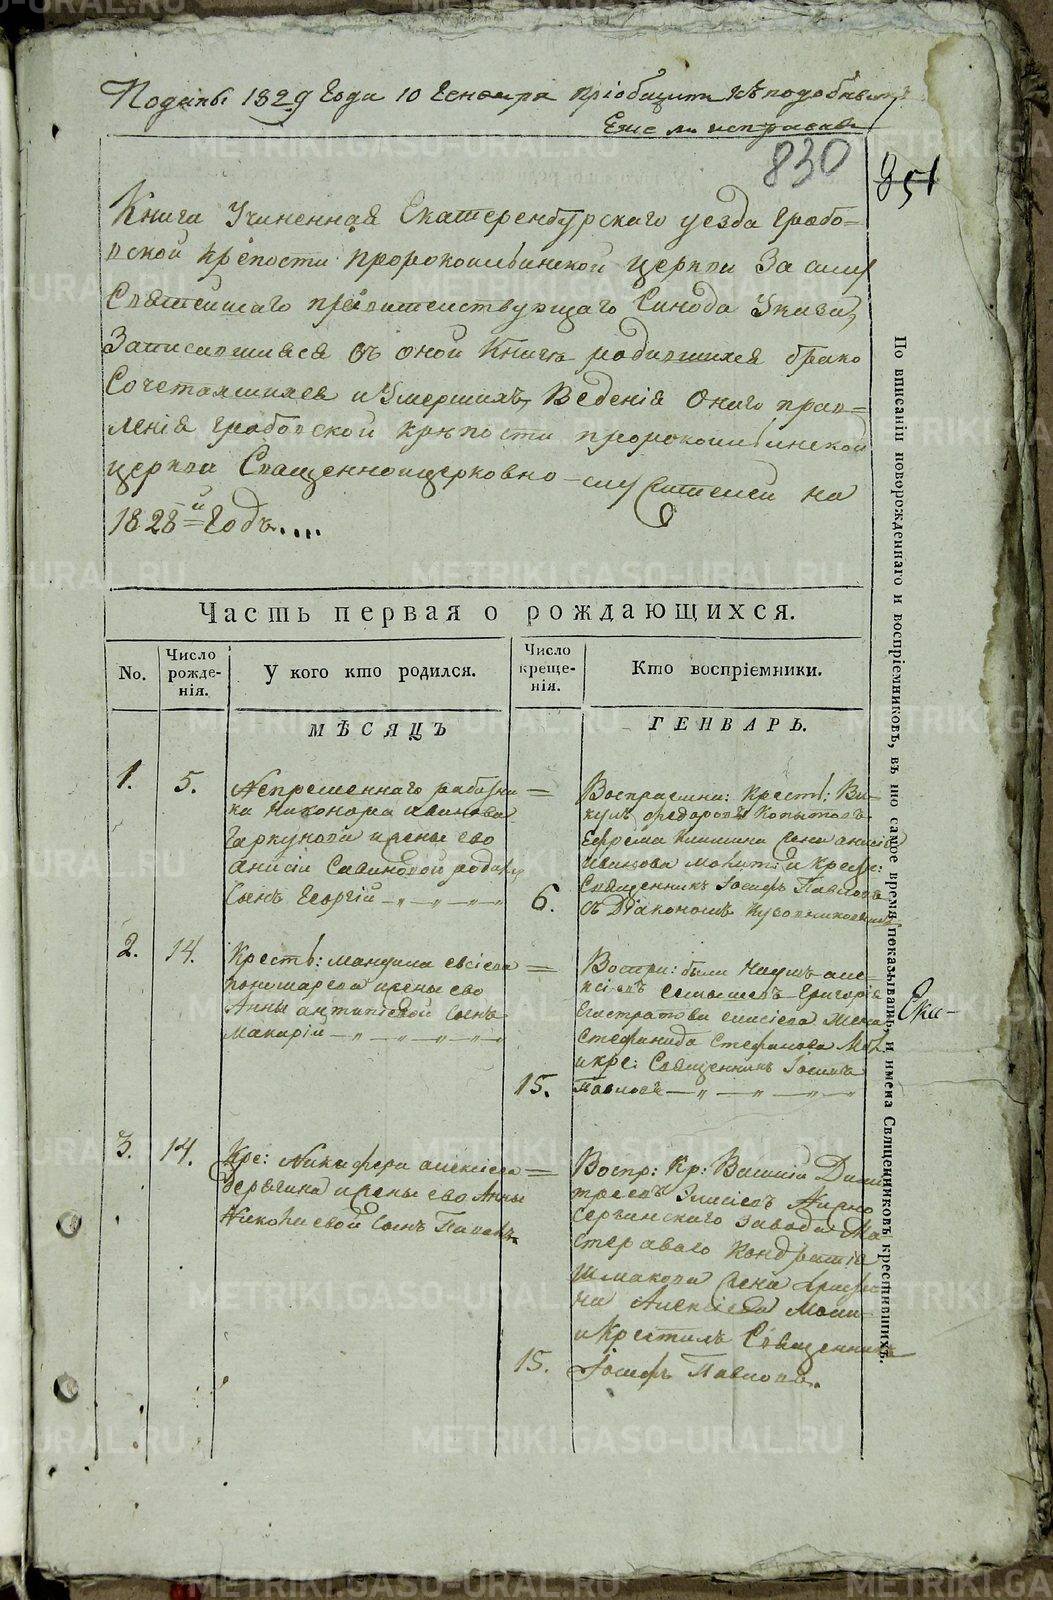 Поданы 1829 Года 10 Генваря пріобщить къ подобнымъ
830
851
Книга Учиненная Екатеренбурского уезда Грабо-
вской крепости пророкоильинской церкви За силу
Святеишаго правителствующаго Синода Указа,
Записавшихся въ оной Книге родившихся брако
Сочетавшихся и Умершихъ, Веденія Оного прав-
ленія Грабовской крѣпости пророкоильинской
церкви Священноицерковно-служителей на
1828-й Годъ....
Часть первая о рождающихся.
No.
Число рожде-нія.
У кого кто родился.
Число креще-нія.
Кто воспріемники.
МѢСЯЦЪ
ГЕНВАРЬ.
1.
5.
Непременнаго работни
ка Никонора
жены ево
Анисіи Савиновой родился
Сынъ Георгій
6.
Воспріемни: Крест: Ви-
кулъ Федоровъ Копытовъ
Ефрема жена
Иванова молит: и крест:
Священникъ Іосифъ Павловъ
съ Діакономъ
2.
14.
Крест: Мануила Евсіева
пономарева жены ево
Анны Антиповой Сынъ
Макарій
15.
Воспри: были Наумъ Але-
ксіевъ Григорія
Евстратова жена
Стефанида Стефанова Мол:
и кре: Священникъ Іосифъ
Павловъ
3.
14.
Кре: Никифора Алексіева
жены ево Анны
Николаевой Сынъ Павелъ
15.
Воспр: Кр: Василій Дми
тревъ Нижно
Сергинскаго Завода Ма
стероваго Кондратія
Шмакова жена
на Алексіева Моли-
и Крестилъ Священникъ
Іосифъ Павловъ.
По вписаніи новорожденнаго и воспріемниковъ, въ то самое время показывать, и имена Священниковъ крестившихъ.
Ека-
METRIKI.GASO-URAL.RU